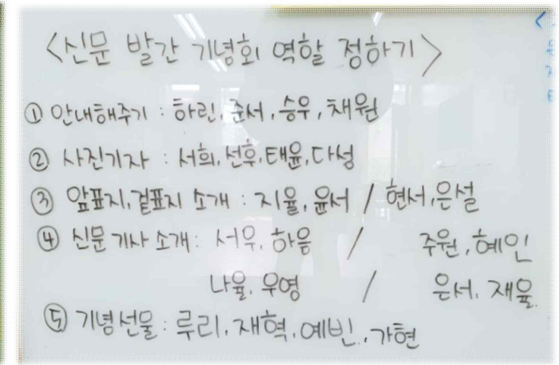 <신문 발간 기념회 역할 정하기>
① 안내해주기 : 하린, 준서, 승우, 채원
② 사진기자 : 서희, 선후, 태윤, 다성
③ 앞표지, 겉표지 소개 : 지율, 윤서 / 현서, 은설
④ 신문 기사 소개 : 서우, 하음 / 주원, 혜인
나율, 우영 / 은서, 재율
⑤ 기념선물 : 루리, 재혁, 예빈, 가현